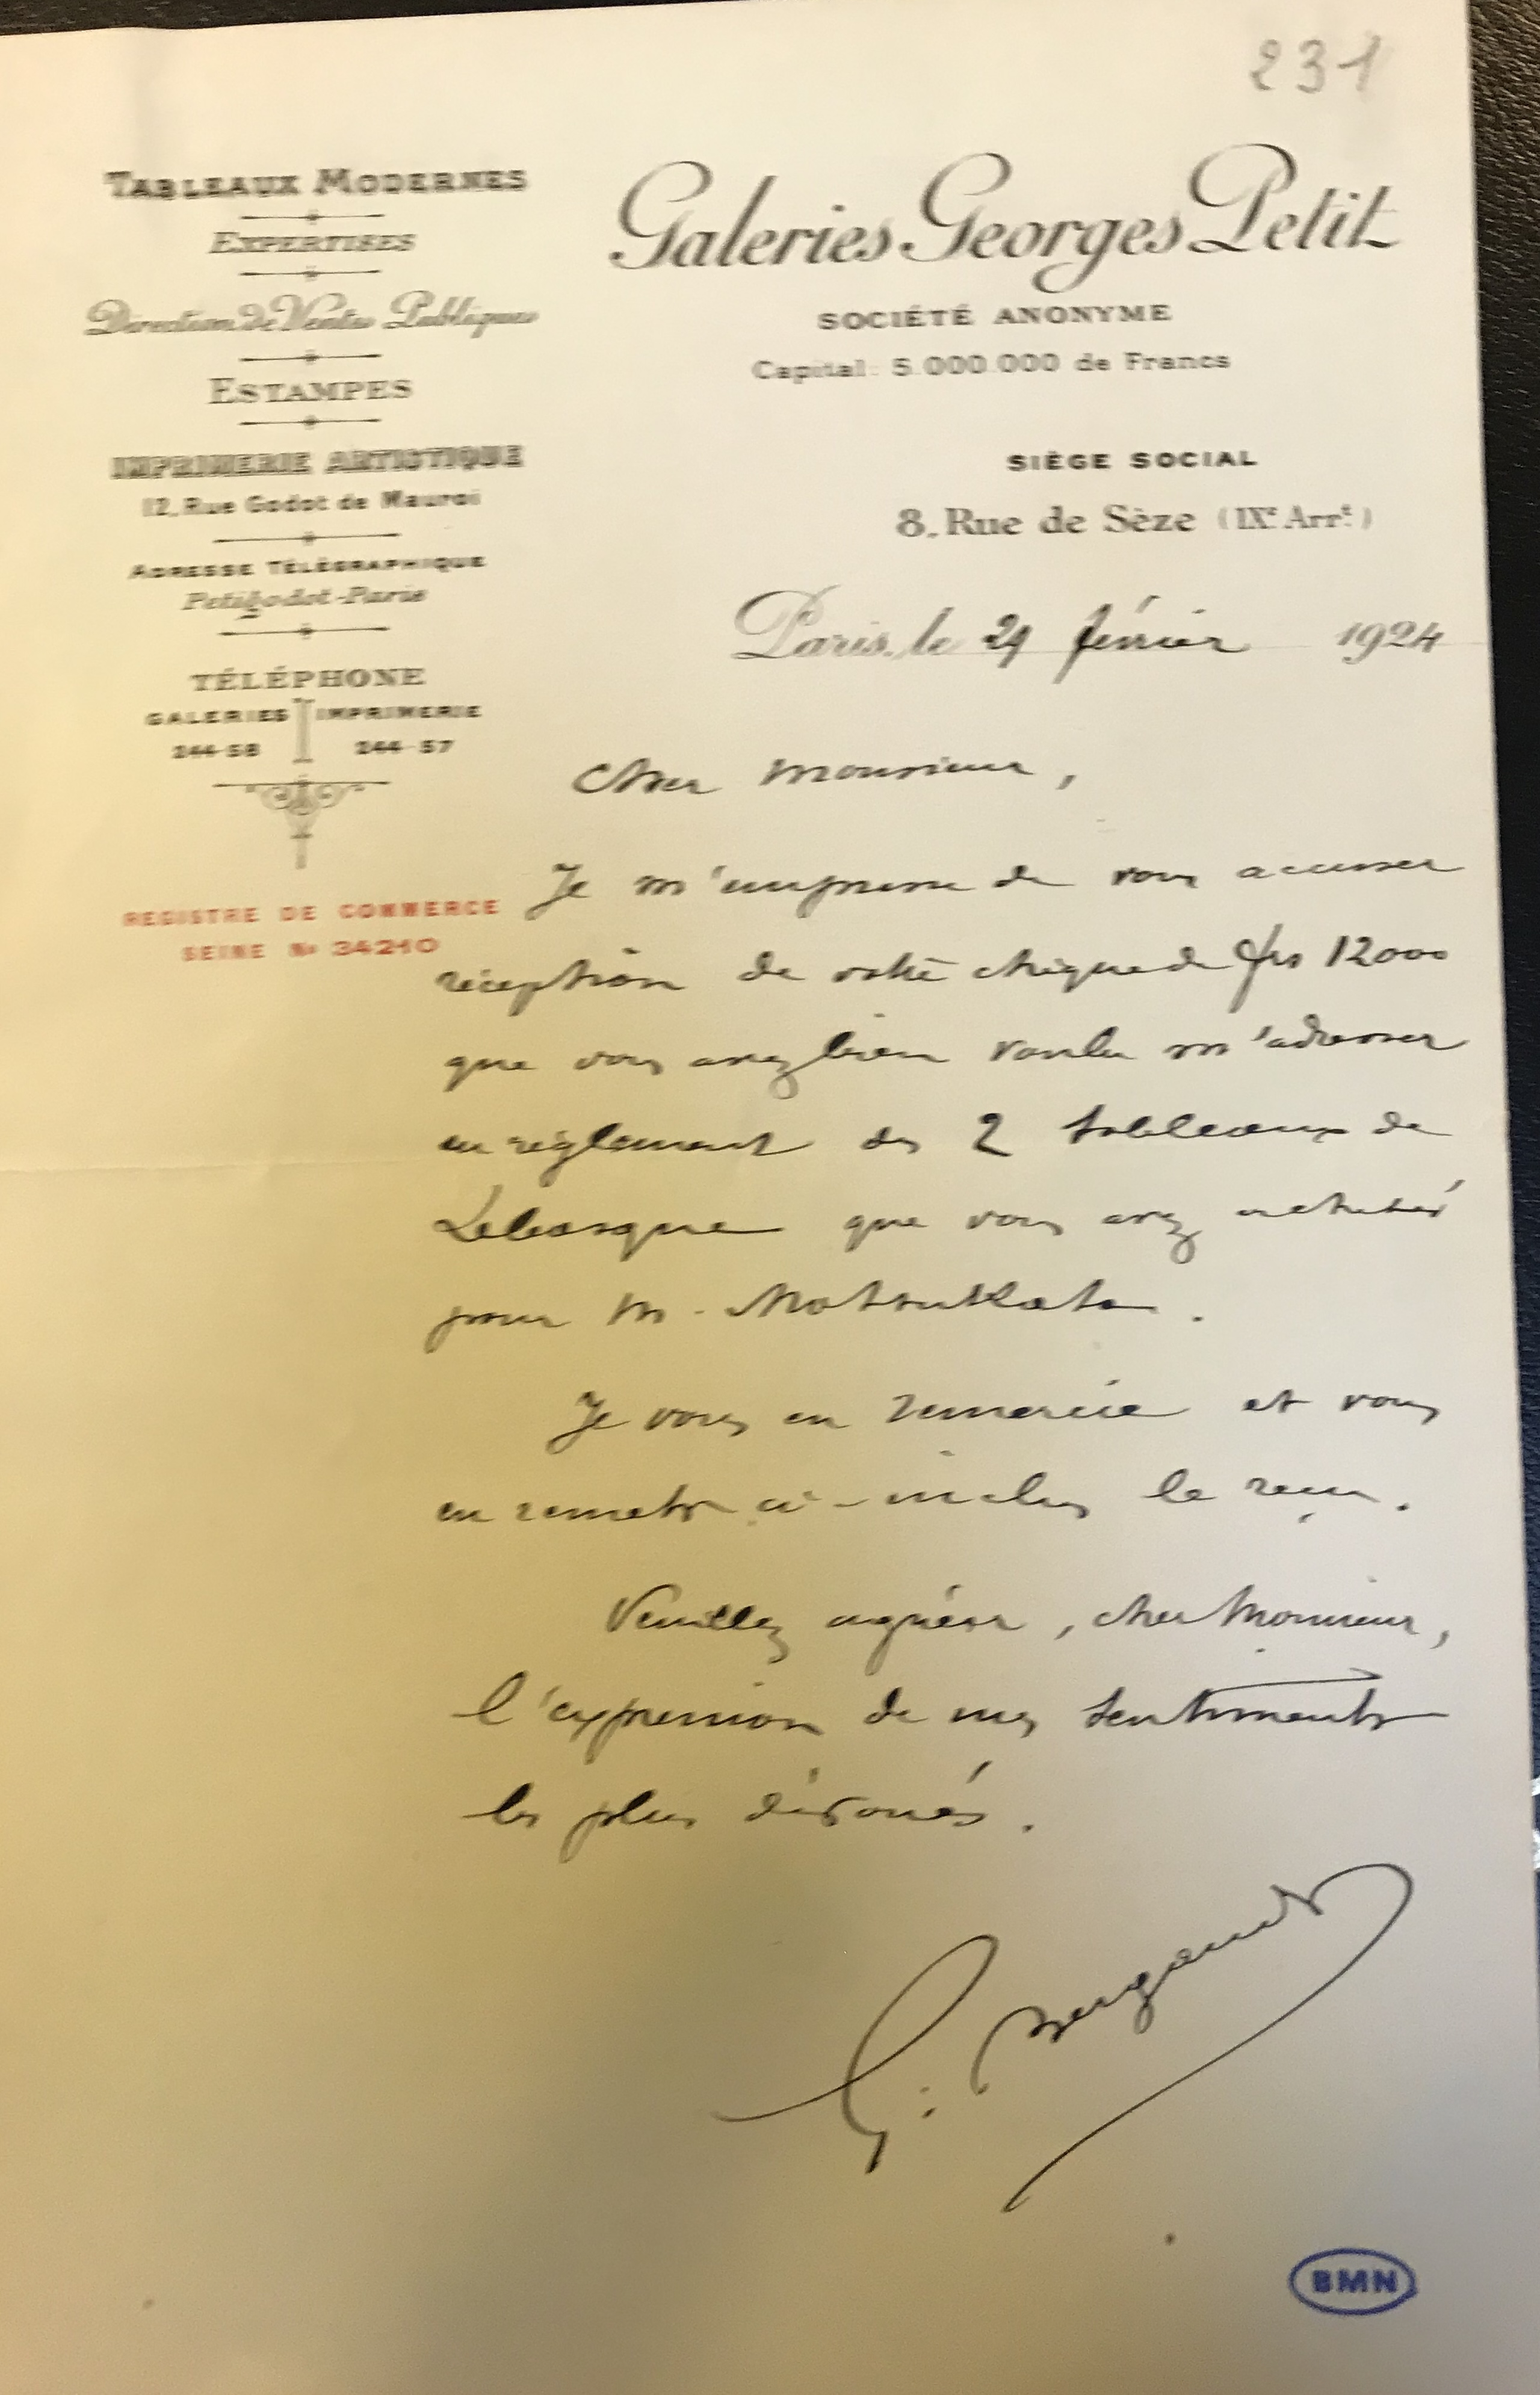 231
TABLEAUX MODERNES
EXPERTISES
Direction de Ventes Publiques
ESTAMPES
IMPRIMERIE ARTISTIQUE
12, Rue Godot de Mauroi
ADRESSE TÉLÉGRAPHIQUE
Petigodot-Paris
TÉLÉPHONE
GALERIES IMPRIMERIE
244-56 244-57
REGISTRE DE COMMERCE
SEINE No 34210
Galeries Georges Petit
SOCIÉTÉ ANONYME
Capital: 5.000.000 de Francs
SIÈGE SOCIAL
8, Rue de Sèze (IXe Arrt)
Paris, le février 1924
Cher Monsieur,
Je m'empresse de vous accuser
réception de votre chèque de frs 12000
que vous avez bien voulu m'adresser
en règlement des 2 tableaux de
Lebasque que vous avez achetés
pour M. Matsukata.
Je vous en remercie et vous
en remets ci-inclus le reçu.
Veuillez agréer, cher Monsieur,
l'expression de mes sentiments
les plus dévoués.
G.
BMN